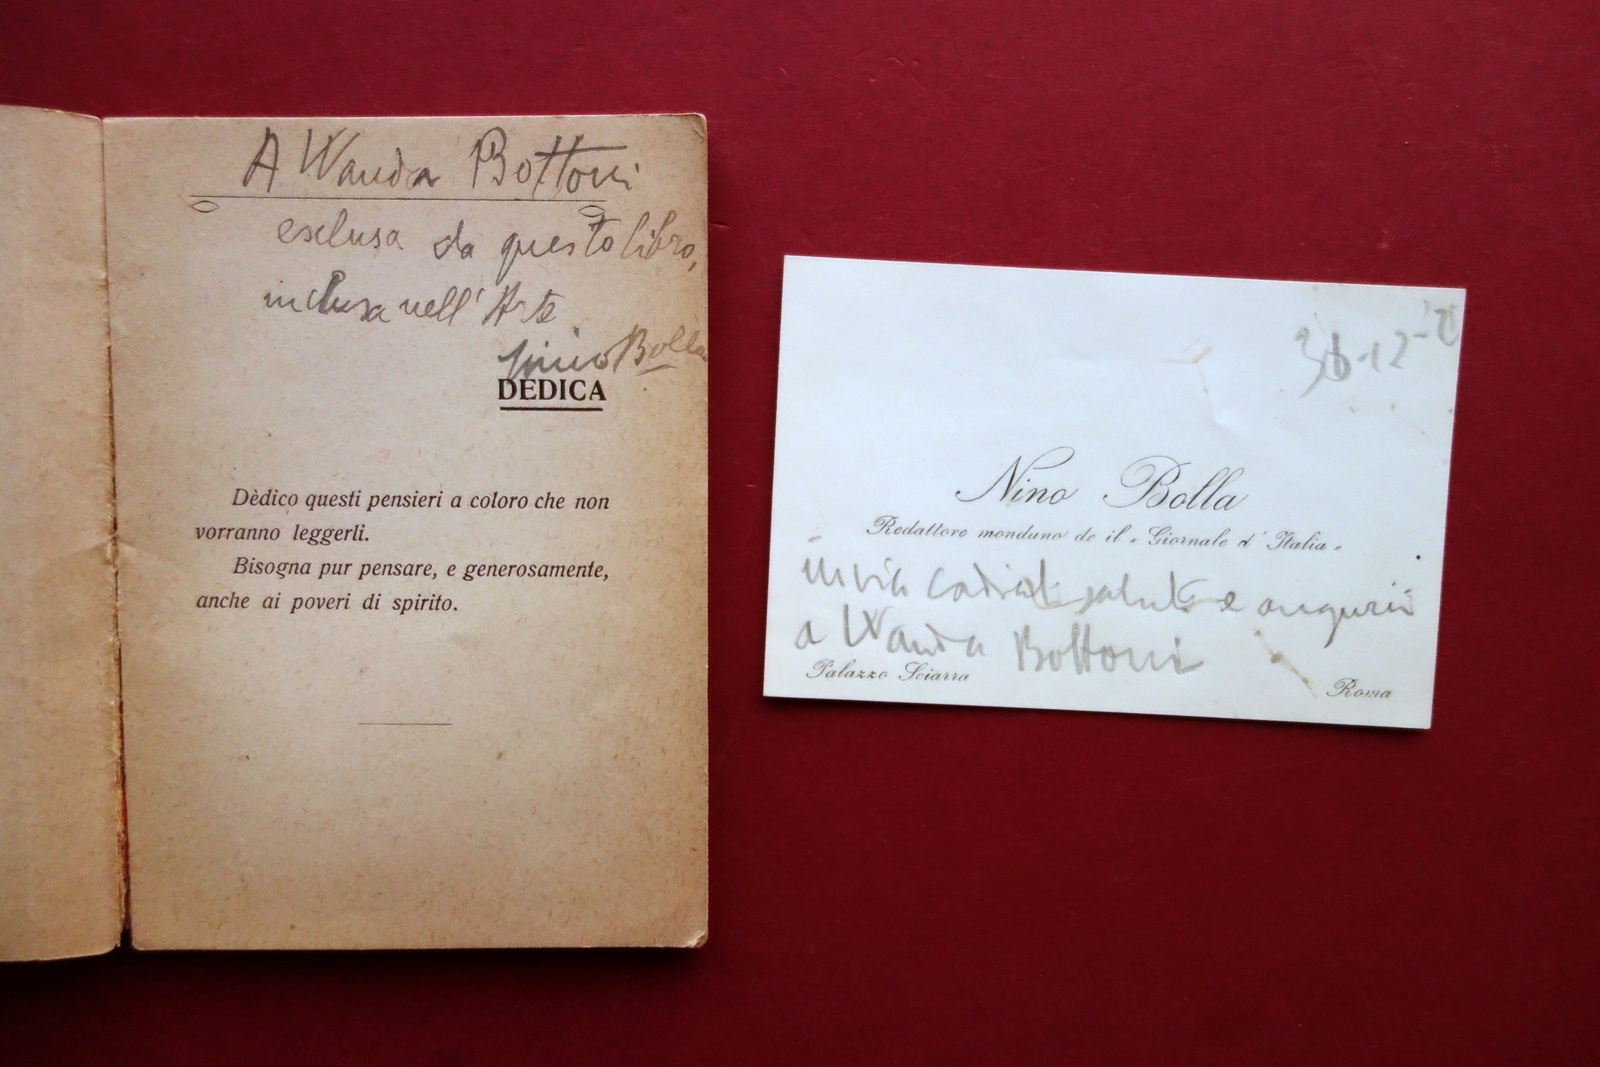 A Wanda Bottoni
esclusa da questo libro,
inclusa nell' Arte
Nino Bolla
DEDICA
Dèdico questi pensieri a coloro che non
vorranno leggerli.
Bisogna pur pensare, e generosamente,
anche ai poveri di spirito.
Nino Bolla
Redattore mondano de il « Giornale d' Italia »
invia cordiali saluti e auguri
a Wanda Bottoni
Palazzo Sciarra
Roma